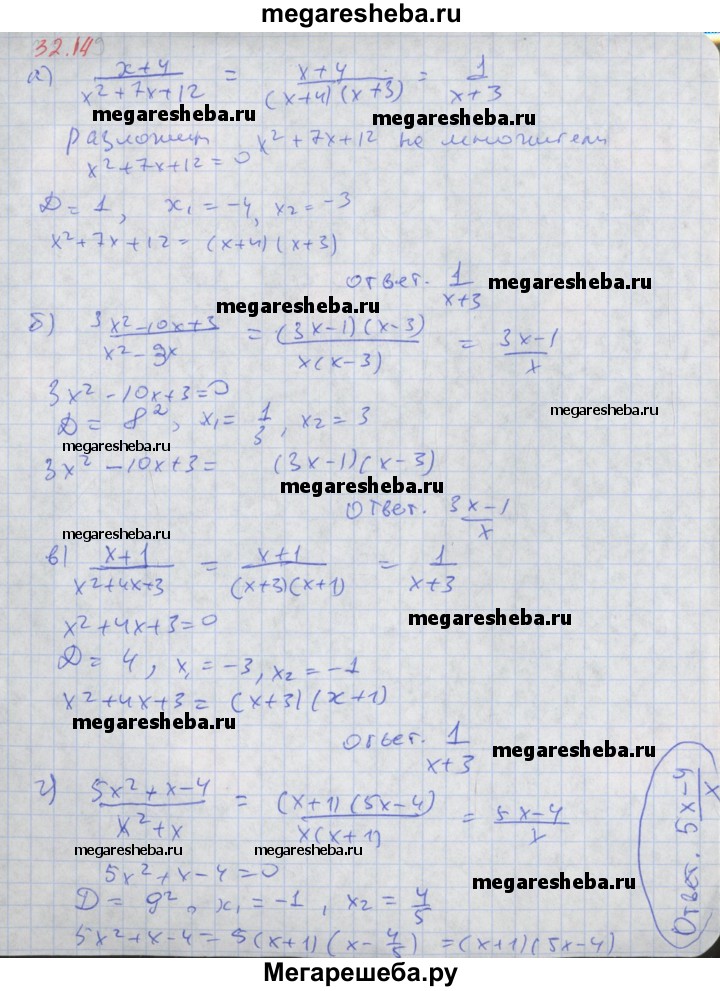 megaresheba.ru
32.14
а) x+4 / x²+7x+12 = x+4 / (x+4)(x+3) = 1 / x+3
megaresheba.ru
megaresheba.ru
разложим x²+7x+12 на множители
x²+7x+12=0
Д=1, x₁=-4, x₂=-3
x²+7x+12=(x+4)(x+3)
ответ. 1 / x+3
megaresheba.ru
megaresheba.ru
б) 3x²-10x+3 / x²-3x = (3x-1)(x-3) / x(x-3) = 3x-1 / x
3x²-10x+3=0
Д=8², x₁=1/3, x₂=3
megaresheba.ru
megaresheba.ru
3x²-10x+3= (3x-1)(x-3)
megaresheba.ru
ответ. 3x-1 / x
megaresheba.ru
в) x+1 / x²+4x+3 = x+1 / (x+3)(x+1) = 1 / x+3
x²+4x+3=0
megaresheba.ru
Д=4, x₁=-3, x₂=-1
x²+4x+3=(x+3)(x+1)
megaresheba.ru
ответ. 1 / x+3
megaresheba.ru
г) 5x²+x-4 / x²+x = (x+1)(5x-4) / x(x+1) = 5x-4 / x
megaresheba.ru
megaresheba.ru
5x²+x-4=0
megaresheba.ru
Д=9², x₁=-1, x₂=4/5
5x²+x-4=5(x+1)(x-4/5)=(x+1)(5x-4)
Ответ. 5x-4 / x
Мегарешеба.ру